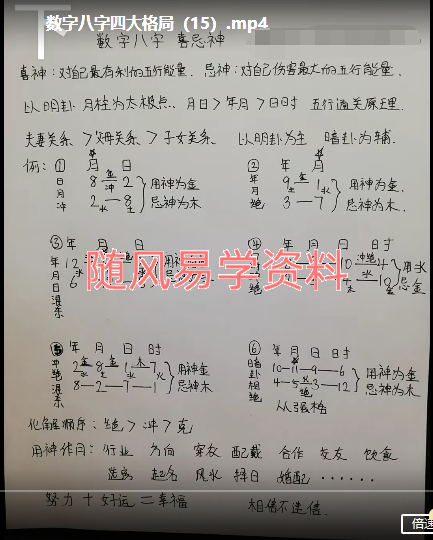 数字八字四大格局（15）.mp4
数字八字 喜忌神
喜神：对自己最有利的五行能量．忌神：对自己伤害最大的五行能量．
以明卦 月柱为太极点．月日＞年月＞日时 五行通关原理
夫妻关系＞父母关系＞子女关系．以明卦为主 暗卦为辅．
例：① 月 日
日月冲
8 金 冲 2
2 水 8
用神为金
忌神为木
② 年 月
年月绝
9 1
3 — 7
用神为金．
忌神为木．
③ 年 月 日
年月日混杂
12
6
④ 年 月 日 日时
10 冲绝 4
水 10
用水
忌金
随风易学资料
⑤ 年 月 日 时
冲绝混杂
2 金 8 金 1 木 7
8 — 2 — 7 — 1
用神金
忌神木
⑥ 年 月 日 时
暗卦相绝
10 — 11 — 9 — 6
4 — 5 3 — 12
从强格
用神为金
忌神为木
化解顺序：绝＞冲＞克
用神作用：行业 方向 家友 配戴 合作 交友 饮食
起名 风水 择日 婚配 ······
努力 ＋ 好运 ＝ 幸福 相信不迷信．
倍速